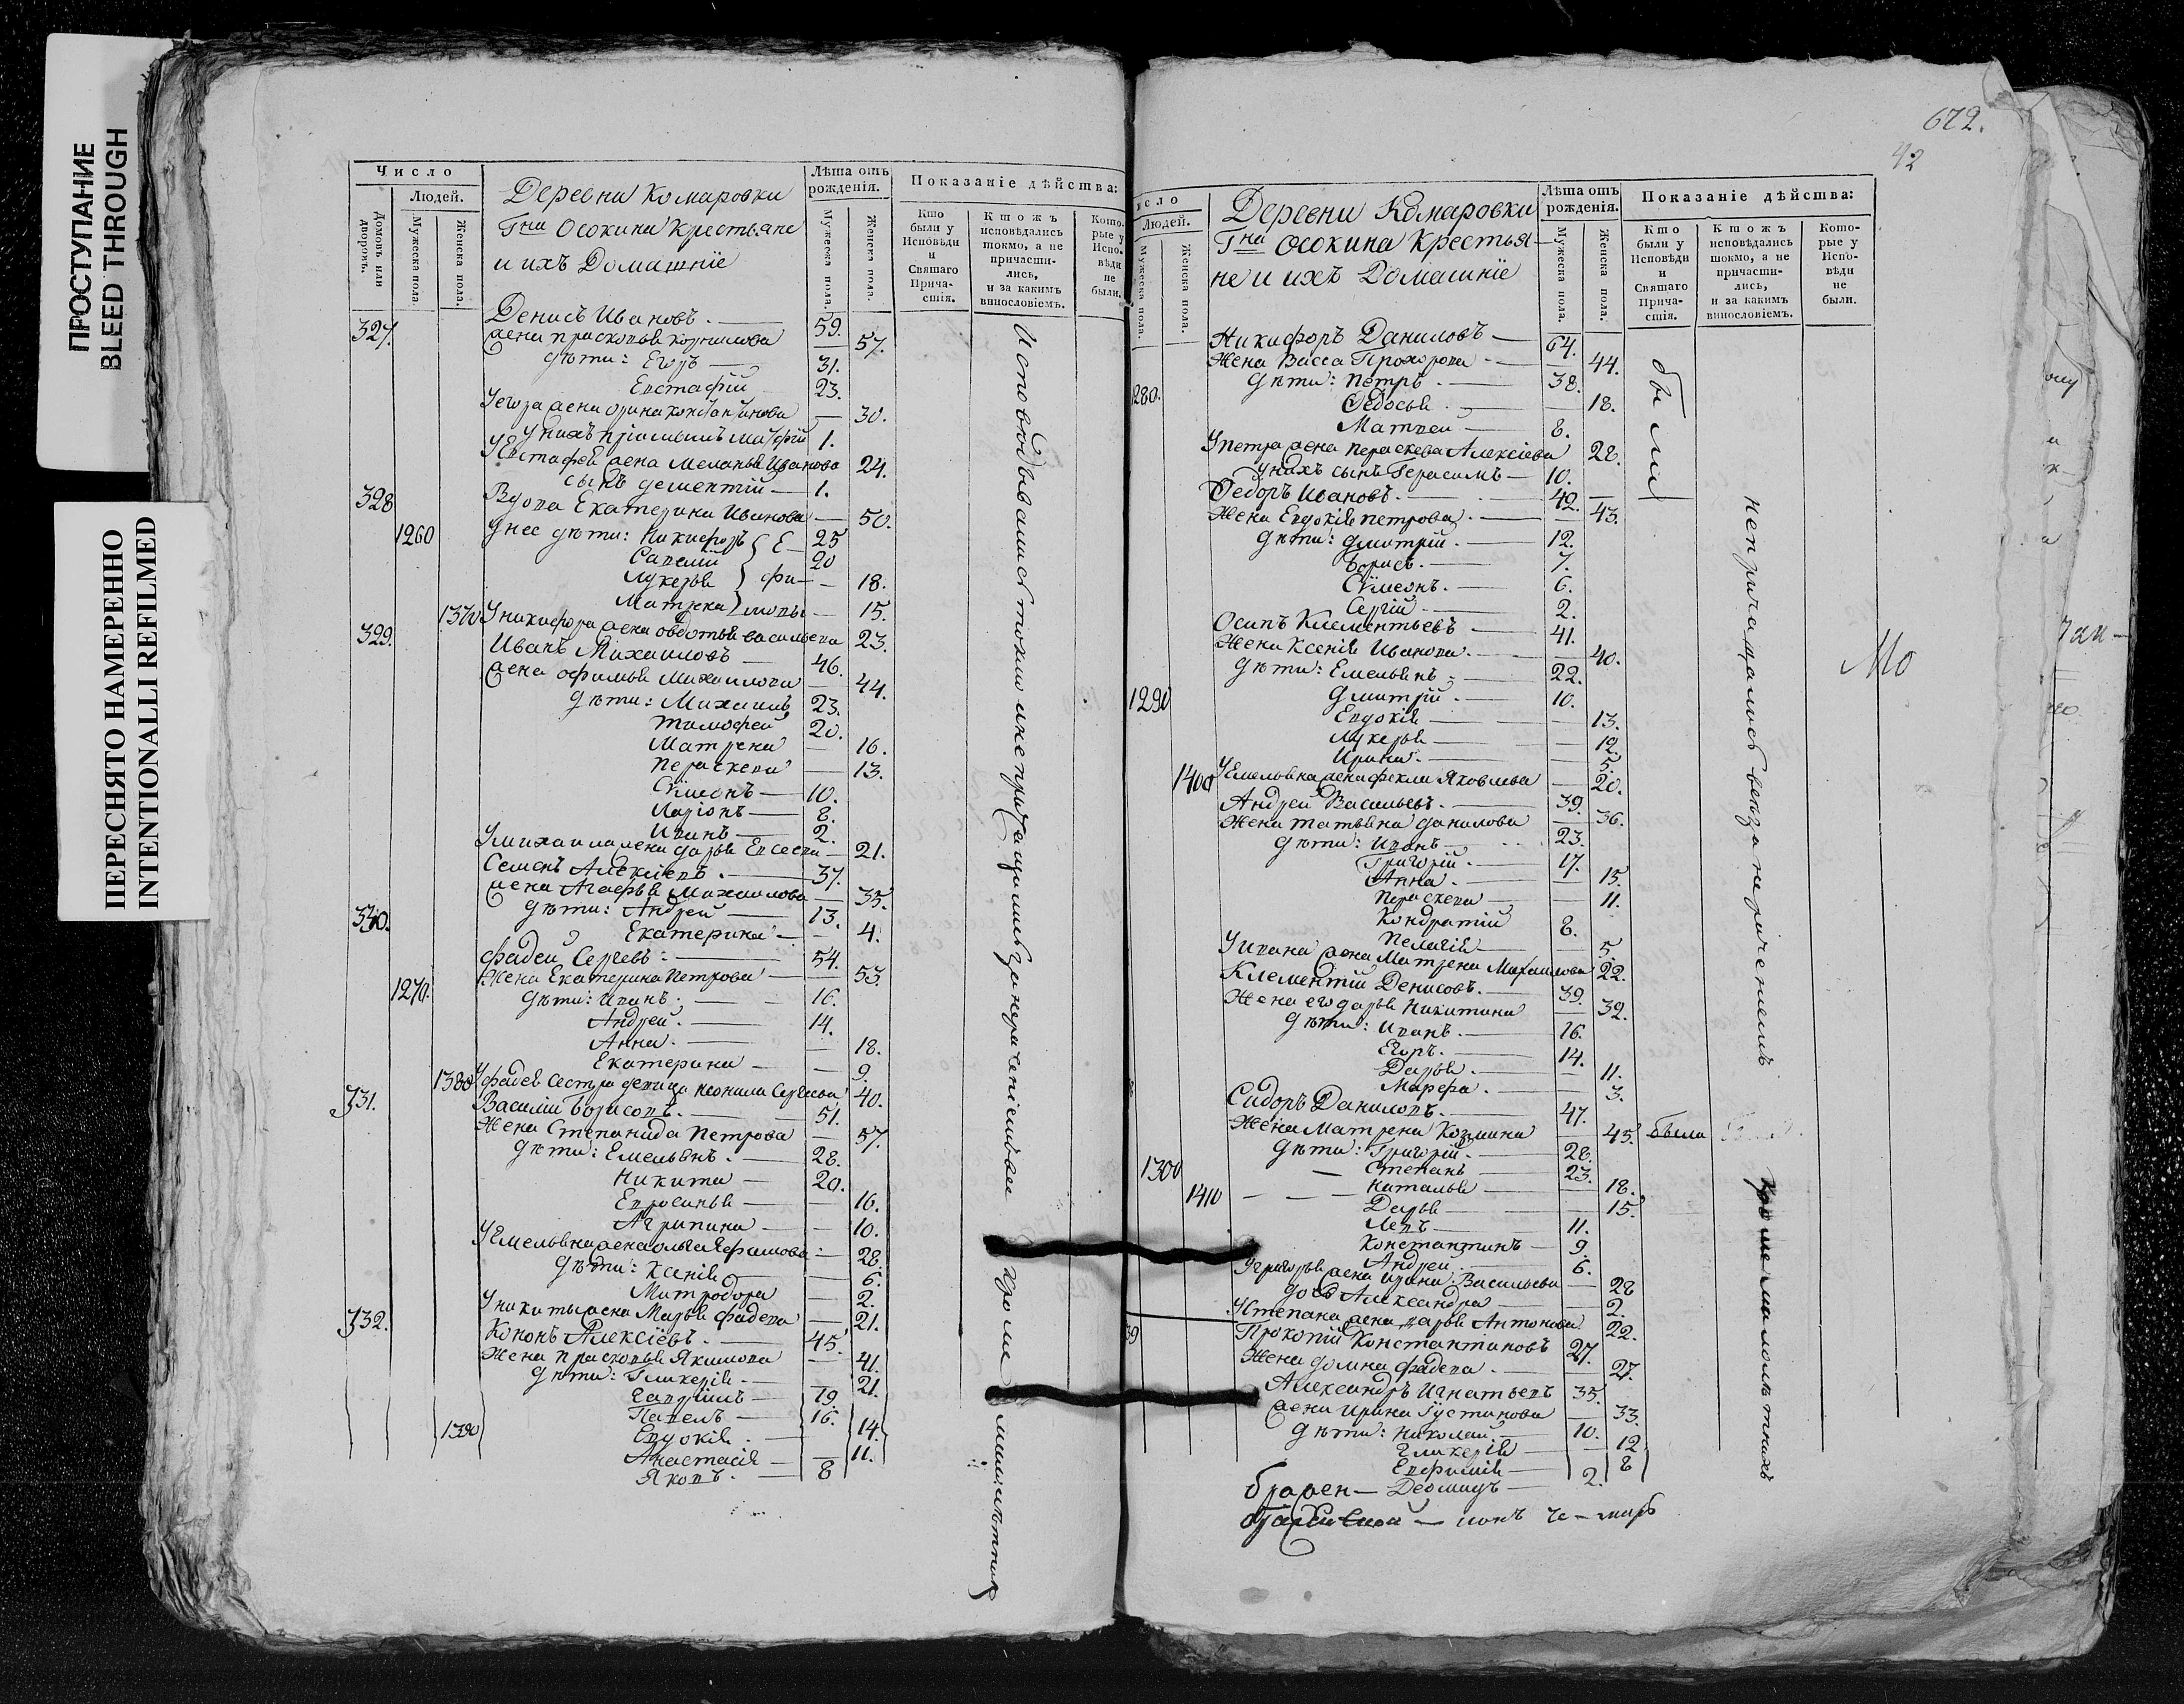 ПРОСТУПАНИЕ
BLEED THROUGH
ПЕРЕСНЯТО НАМЕРЕННО
INTENTIONALLI REFILMED
Число
Людей.
Домовъ или дворовъ.
Мужеска пола.
Женска пола.
Деревни Комаровки
Гна Осокина Крестьяне
и ихъ Домашніе
Лѣта отъ рожденія.
Мужеска пола.
Женска пола.
Показаніе дѣйства:
Кто были у Исповѣди и Святаго Прича-стія.
Ктожъ исповѣдались токмо, а не причасти-лись, и за какимъ винословіемъ.
Кото-рые у Испо-вѣди не были.
327. Денисъ Ивановъ. — 59.
жена прасковья корнилова — 57.
дѣти: Егоръ — 31.
Евстафій 23.
У егора жена орина — 30.
У нихъ пріомышъ 1.
У Евстафея жена меланья Иванова 24.
сынъ дементій — 1.
328 Вдова Екатерина Иванова — 50.
1260 У нее дѣти: Никифоръ 25
Савелій 20
Лукерья — 18.
Матрена — 15.
1370 У никифора жена овдотья васильева 23.
329. Иванъ Михаиловъ — 46.
жена офимья Михаилова 44.
дѣти: Михаилъ 23.
тимофей 20.
Матрена — 16.
Параскева — 13.
Сѵмеонъ — 10.
Ларіонъ — 8.
Иванъ — 2.
У михаила жена дарья Евсеева — 21.
Семенъ Алексіевъ. — 37.
жена Агафья Михаилова — 35.
330. дѣти: Андрей — 13.
Екатерина — 4.
фадей Сергевъ: — 54.
Жена Екатерина Петрова — 53.
1270. дѣти: Иванъ. — 16.
Андрей. — 14.
Анна. — 18.
Екатерина — 9.
1380 У фадея Сестра девица неонила Сергеева 40.
331. Василій Борисовъ. — 51.
Жена Степанида Петрова — 57.
дѣти: Емельянъ. — 28.
Никита — 20.
Евросинья — 16.
Агрипина — 10.
У Емельяна жена ольга Ефимова — 28.
дѣти: Ксенія — 6.
Митродора — 2.
У никиты жена Марья фадева — 21.
332. Кононъ Алексіевъ. — 45.
Жена прасковья Якимова — 41.
дѣти: Гликерія. — 21.
Гаврилъ — 19.
Павелъ — 16.
1390 Евдокія. — 14.
Анастасія — 11.
Яковъ. — 8
Исповѣдывались токмо и не причащались за нераченіемъ кроме малолѣтнихъ
672.
42
исло
Людей.
Мужеска пола.
Женска пола.
Деревни Комаровки
Гна Осокина Крестья-
не и ихъ Домашніе
Лѣта отъ рожденія.
Мужеска пола.
Женска пола.
Показаніе дѣйства:
Кто были у Исповѣди и Святаго Прича-стія.
Ктожъ исповѣдались токмо, а не причасти-лись, и за какимъ винословіемъ.
Кото-рые у Испо-вѣди не были.
Никифоръ Даниловъ — 64.
Жена Васса Прохорова — 44.
280. дѣти: Петръ. — 38.
Федосья. — 18.
Матвей — 8.
У петра жена параскева Алексіева 28.
у нихъ сынъ Герасимъ — 10.
были
Федоръ Ивановъ. — 42.
Жена Евдокія петрова. — 43.
дѣти: дмитрій. — 12.
Борисъ. — 7.
Сѵмеонъ. — 6.
Сергій — 2.
Осипъ Клементьевъ — 41.
Жена Ксенія Иванова. — 40.
дѣти: Емельянъ — 22.
1290 дмитрій — 10.
Евдокія — 13.
Лукерья — 12.
Ирина. — 5.
1400 У Емельяна жена фекла Яковлева — 20.
Андрей Васильевъ. — 39.
Жена татьяна данилова — 36.
дѣти: Иванъ — 23.
Григорій. — 17.
Анна. — 15.
Параскева — 11.
Кондратій 8.
Пелагія — 5.
У ивана жена Матрена Михаилова 22.
Клементій Денисовъ. — 39.
Жена его дарья Никитина 32.
дѣти: Иванъ. — 16.
Егоръ. — 14.
Дарья. — 11.
Марфа. — 3.
Сидоръ Даниловъ. — 47.
Жена Матрена Козмина — 45. была
дѣти: Григорій. — 28.
1300 — Степанъ — 23.
1410 — Наталья — 18.
Дарья — 15.
Левъ — 11.
Константинъ — 9.
Андрей — 6.
У григорья жена Ирина Васильева — 28
дочь Александра — 2.
У Степана жена дарья Антонова 22.
Прокопій Константиновъ 27.
Жена домна фадева. — 27.
Александръ Игнатьевъ 35.
жена Ирина Густинова — 33.
дѣти: Николай. — 10.
Гликерія — 12
Евфимія — 8
Деомидъ — 2.
не причащались за нераченіемъ
кроме малолѣтнихъ
Мо